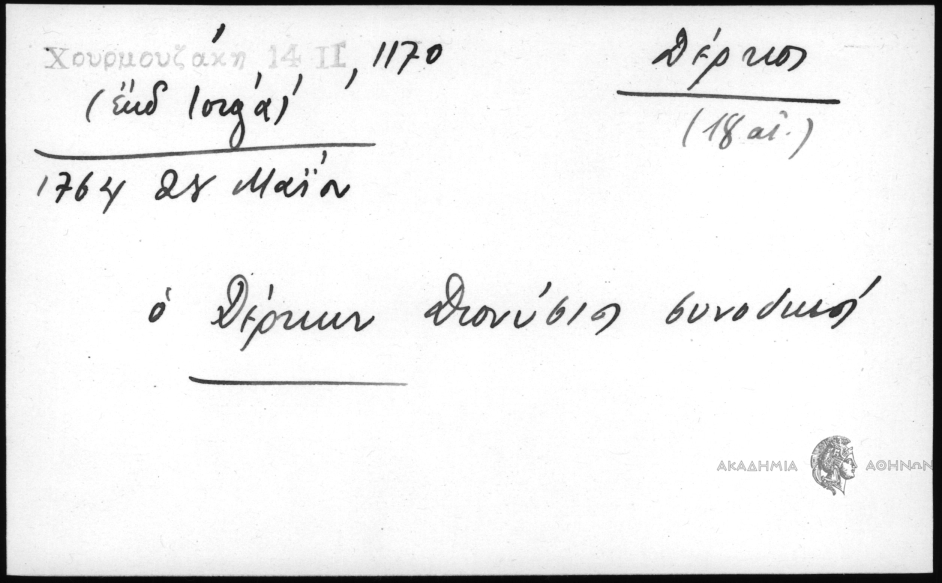 Χουρμουζάκη 14 II, 1170
Δέρκοι
(ἔκδ Ἰορgά)
(18 αἰ.)
1764 28 Μαΐου
ὁ Δέρκων Διονύσιος συνοδικός
ΑΚΑΔΗΜΙΑ ΑΘΗΝΩΝ